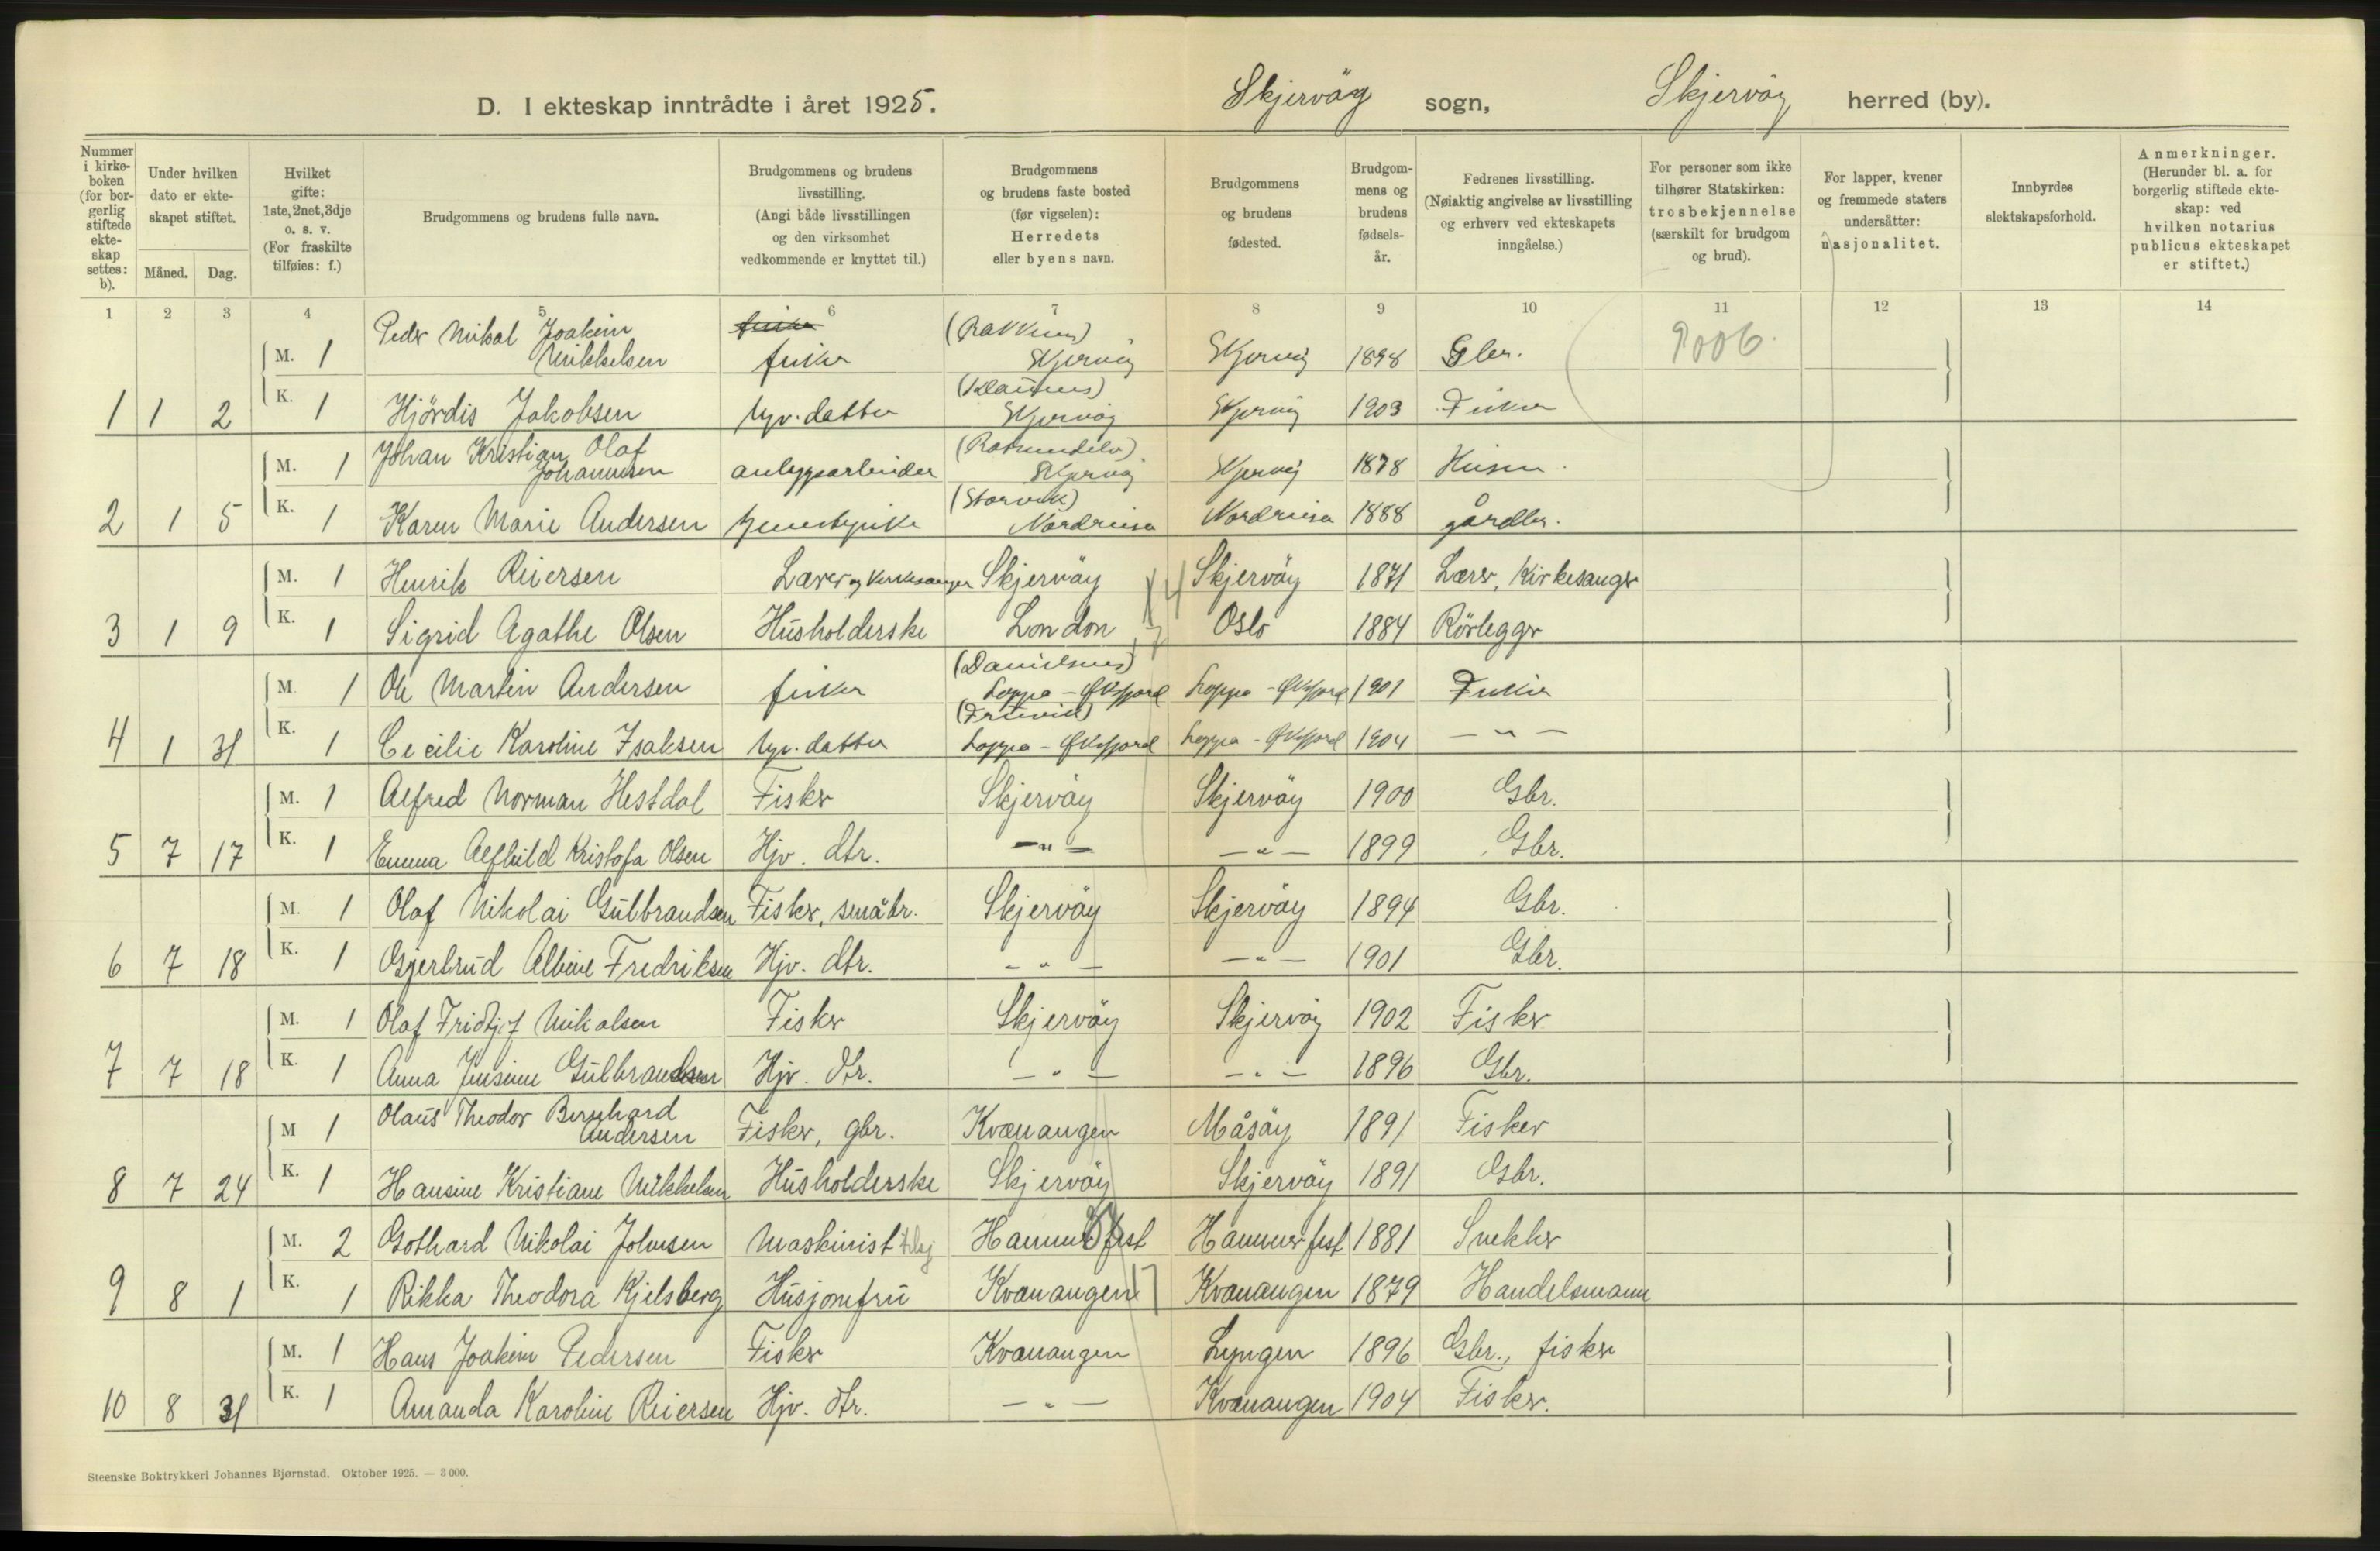 D. I ekteskap inntrådte i året 1925. Skjervöy sogn, Skjervöy herred (by).
Nummer i kirkeboken (for borgerlig stiftede ekteskap settes: b).
Under hvilken dato er ekteskapet stiftet.
Måned. Dag.
Hvilket gifte: 1ste, 2net, 3dje o. s. v. (For fraskilte tilføies: f.)
Brudgommens og brudens fulle navn.
Brudgommens og brudens livsstilling. (Angi både livsstillingen og den virksomhet vedkommende er knyttet til.)
Brudgommens og brudens faste bosted (før vigselen): Herredets eller byens navn.
Brudgommens og brudens fødested.
Brudgommens og brudens fødselsår.
Fedrenes livsstilling. (Nøiaktig angivelse av livsstilling og erhverv ved ekteskapets inngåelse.)
For personer som ikke tilhører Statskirken: trosbekjennelse (særskilt for brudgom og brud).
For lapper, kvener og fremmede staters undersåtter: nasjonalitet.
Innbyrdes slektskapsforhold.
Anmerkninger. (Herunder bl. a. for borgerlig stiftede ekteskap: ved hvilken notarius publicus ekteskapet er stiftet.)
1 2 3 4 5 6 7 8 9 10 11 12 13 14
Peder Mikal Joakim fisker
M. 1 Mikkelsen fisker Skjervöy Skjervöy 1898 Gbr.
1 1 2 K. 1 Hjördis Jakobsen hjv. datter Skjervöy Skjervöy 1903 Fisker
Johan Kristian Olaf
M. 1 Johannesen anleggsarbeider Skjervöy Skjervöy 1878 Husm.
(Storvik)
2 1 5 K. 1 Karen Marie Andersen tjenestepike Nordreisa Nordreisa 1888 gårdbr.
M. 1 Henrik Reiersen Lærer og kirkesanger Skjervöy Skjervöy 1871 Lærer, Kirkesanger
3 1 9 K. 1 Sigrid Agathe Olsen Husholderske London Oslo 1884 Rörlegger
(Danielsnes)
M. 1 Ole Martin Andersen fisker Loppa - Øksfjord Loppa - Øksfjord 1901 Fisker
4 1 31 K. 1 Cecilie Karoline Isaksen hjv. datter Loppa - Øksfjord Loppa - Øksfjord 1904 — " —
M. 1 Alfred Norman Hestdal Fisker Skjervöy Skjervöy 1900 Gbr.
5 7 17 K. 1 Emma Alfhild Kristofa Olsen Hjv. dtr. — " — — " — 1899 Gbr.
M. 1 Olaf Nikolai Gulbrandsen Fisker, småbr. Skjervöy Skjervöy 1894 Gbr.
6 7 18 K. 1 Gjertrud Albine Fredriksen Hjv. dtr. — " — — " — 1901 Gbr.
M. 1 Olaf Fridtjof Mikalsen Fisker Skjervöy Skjervöy 1902 Fisker
7 7 18 K. 1 Anna Jensine Gulbrandsen Hjv. dtr. — " — — " — 1896 Gbr.
Olaus Theodor Bernhard
M 1 Andersen Fisker, gbr. Kvænangen Måsöy 1891 Fisker
8 7 24 K. 1 Hansine Kristiane Mikkelsen Husholderske Skjervöy Skjervöy 1891 Gbr.
M. 2 Gothard Nikolai Johnsen Maskinist Hammerfest Hammerfest 1881 Snekker
9 8 1 K. 1 Rikka Theodora Kjelsberg Husjomfru Kvænangen Kvænangen 1879 Handelsmann
M. 1 Hans Joakim Pedersen Fisker Kvænangen Lyngen 1896 Gbr., fisker
10 8 31 K. 1 Amanda Karoline Reiersen Hjv. dtr. — " — Kvænangen 1904 Fisker.
Steenske Boktrykkeri Johannes Bjørnstad. Oktober 1925. — 3 000.